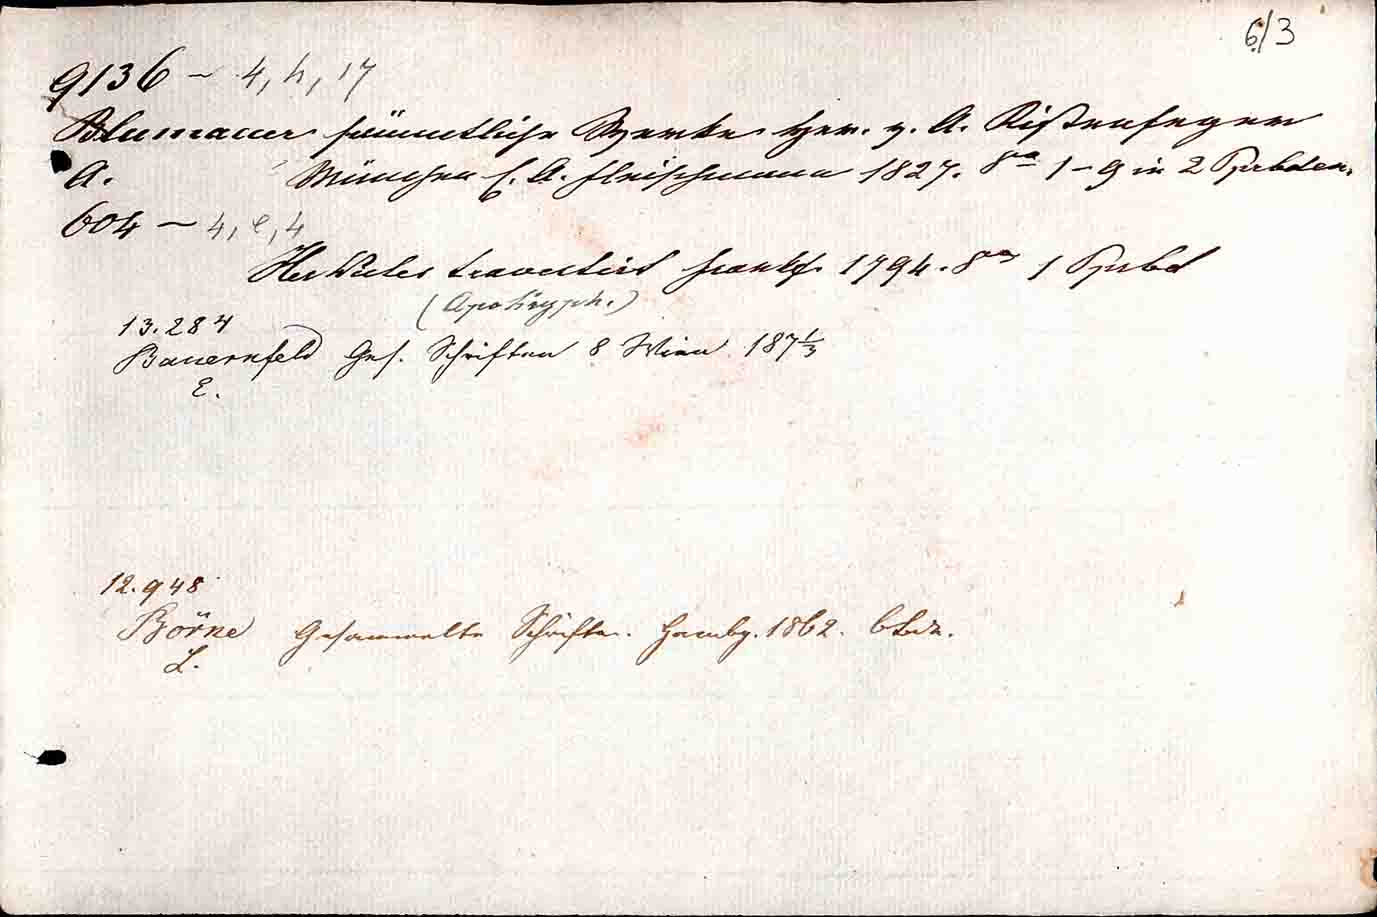 6/3
9136 – 4, h, 17
Blumauer sämmtliche Werke her. v. A. Kistenfeger
A. München E. A. Fleischmann 1827. 8vo 1–9 in 2 Ppbden.
604 – 4, e, 4
Herkules travestirt Frankf. 1794. 8vo 1 Ppbd
(Apokryph.)
13.284
Bauernfeld Ges. Schriften 8 Wien 187 1/3
E.
12.948
Börne Gesammelte Schriften. Hambg. 1862. 6 Bde.
L.